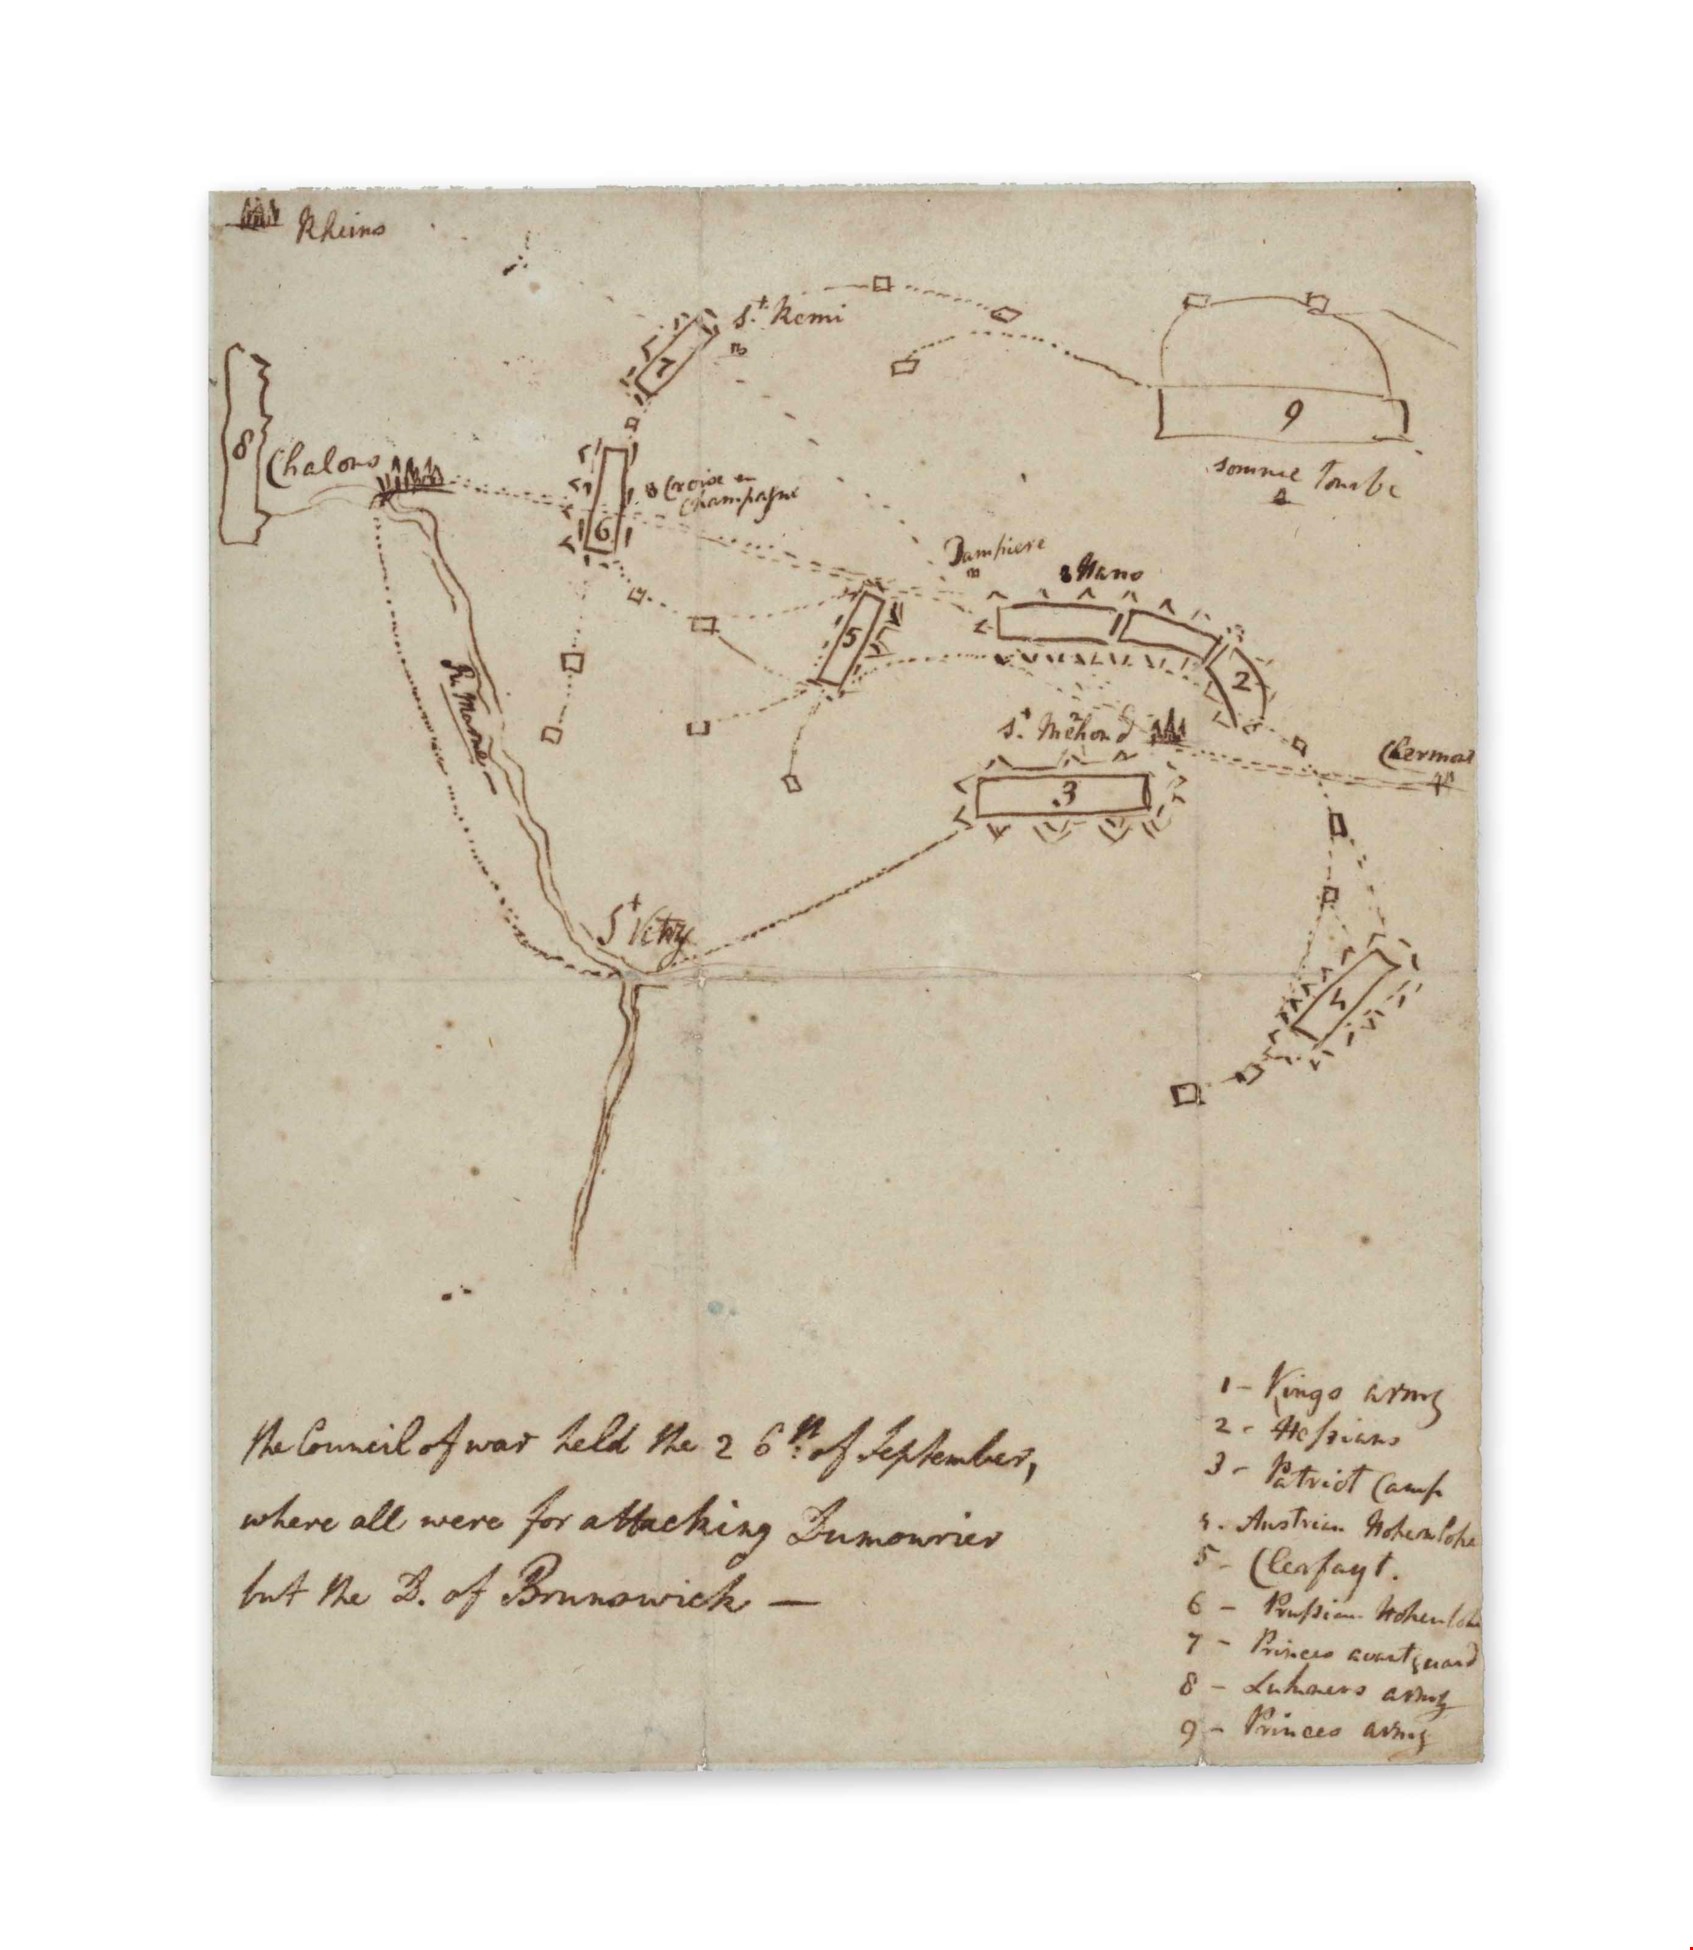 Rheims
St. Remi
7
9
8
Chalons
Croise en
Champagne
6
somme Tourbe
Dampiere
Hans
1
5
2
R. Marne
St. Mehoud
Clermont
3
St Vitry
4
1 - Kings army
2 - Hessians
3 - Patriot Camp
4. Austrian Hohenlohe
5 - Clerfayt.
6 - Prussian Hohenlohe
7 - Princes avantguard
8 - Lukners army
9 - Princes army
the Council of war held the 26th. of September,
where all were for attacking Dumourier
but the D. of Brunswick —